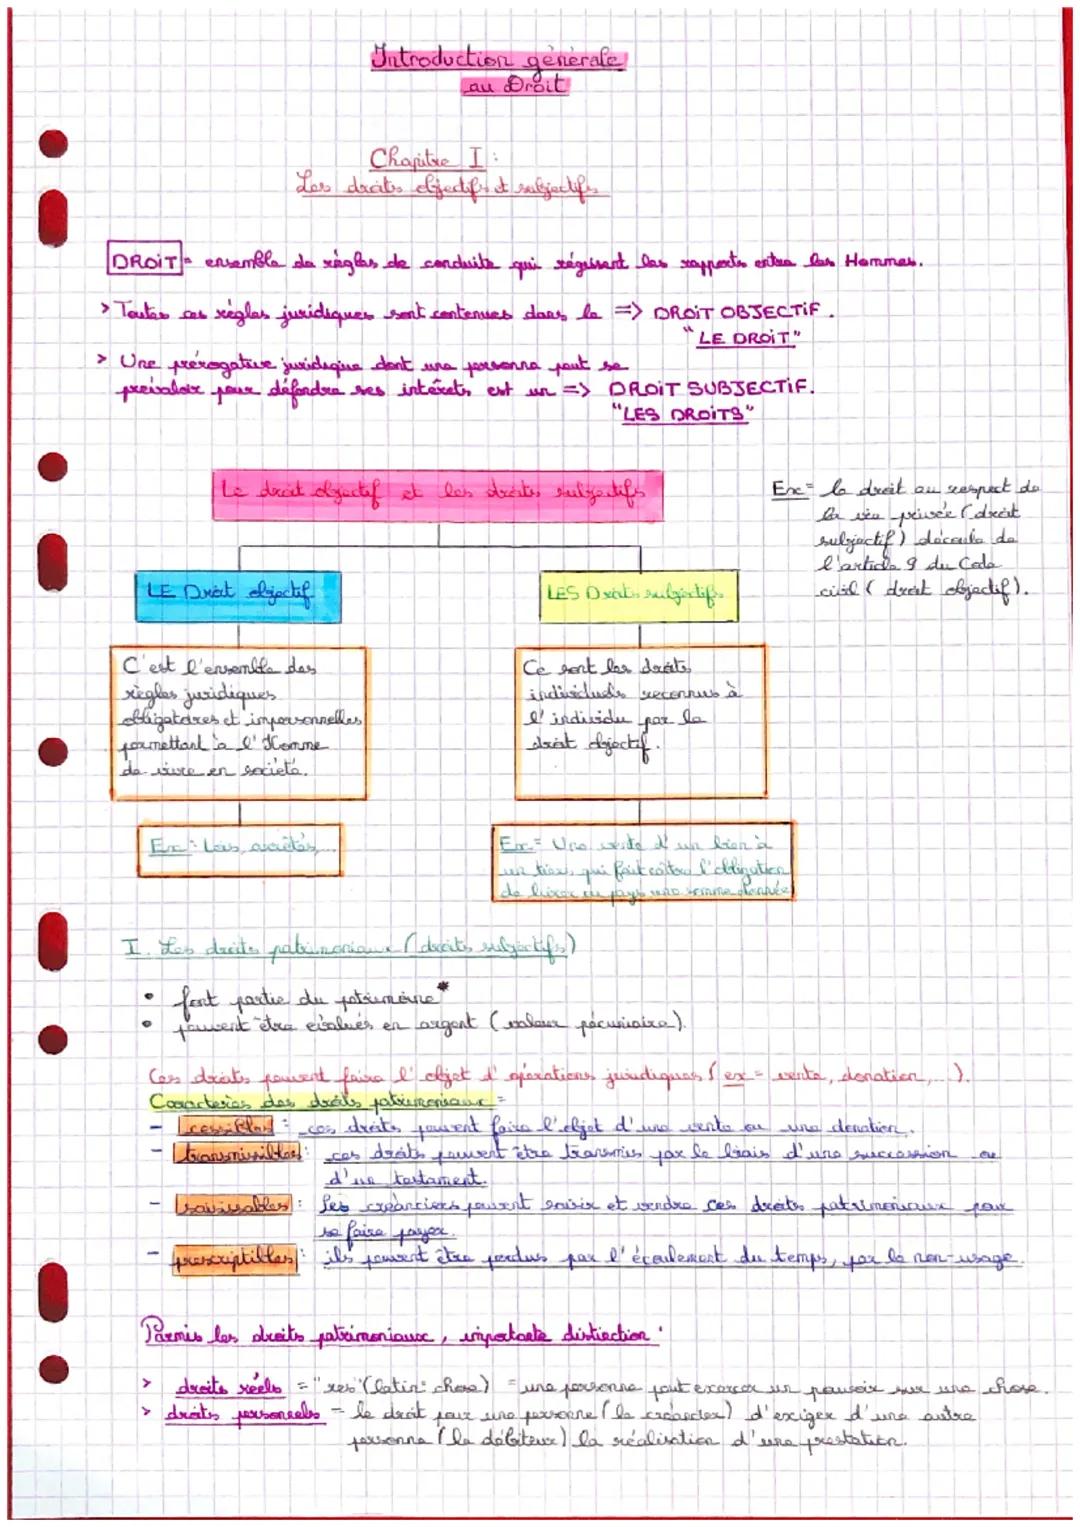 Introduction générale
au Droit
Chapitre I :
Les droits objectifs et subjectifs
DROIT = ensemble de règles de conduite qui régissent les rapports entre les Hommes.
> Toutes ces règles juridiques sont contenues dans le => DROIT OBJECTIF.
"LE DROIT"
> Une prérogative juridique dont une personne peut se
prévaloir pour défendre ses intérêts est un => DROIT SUBJECTIF.
"LES DROITS"
Le droit objectif et les droits subjectifs
Ex = le droit au respect de
la vie privée (droit
subjectif) découle de
l'article 9 du Code
civil (droit objectif).
LE Droit objectif
LES Droits subjectifs
C'est l'ensemble des
règles juridiques
obligatoires et impersonnelles
permettant à l'Homme
de vivre en société.
Ce sont les droits
individuels reconnus à
l'individu par le
droit objectif.
Ex : Lois, arrêtés,...
Ex = Une vente d'un bien à
un tiers, qui fait l'obligation
de livrer une somme donnée
I. Les droits patrimoniaux (droits subjectifs)
• font partie du patrimoine*
• peuvent être évalués en argent (valeur pécuniaire).
Ces droits peuvent faire l'objet d'opérations juridiques (ex = vente, donation,...).
Caractères des droits patrimoniaux =
- cessibles : ces droits peuvent faire l'objet d'une vente ou une donation.
- transmissibles : ces droits peuvent être transmis par le biais d'une succession ou
d'un testament.
- saisissables : Les créanciers peuvent saisir et vendre ces droits patrimoniaux pour
se faire payer.
- prescriptibles : ils peuvent être perdus par l'écoulement du temps, par le non-usage.
Parmis les droits patrimoniaux, importante distinction :
> droits réels = "res" (latin: chose) = une personne peut exercer un pouvoir sur une chose.
> droits personnels = le droit pour une personne (le créancier) d'exiger d'une autre
personne (le débiteur) la réalisation d'une prestation.